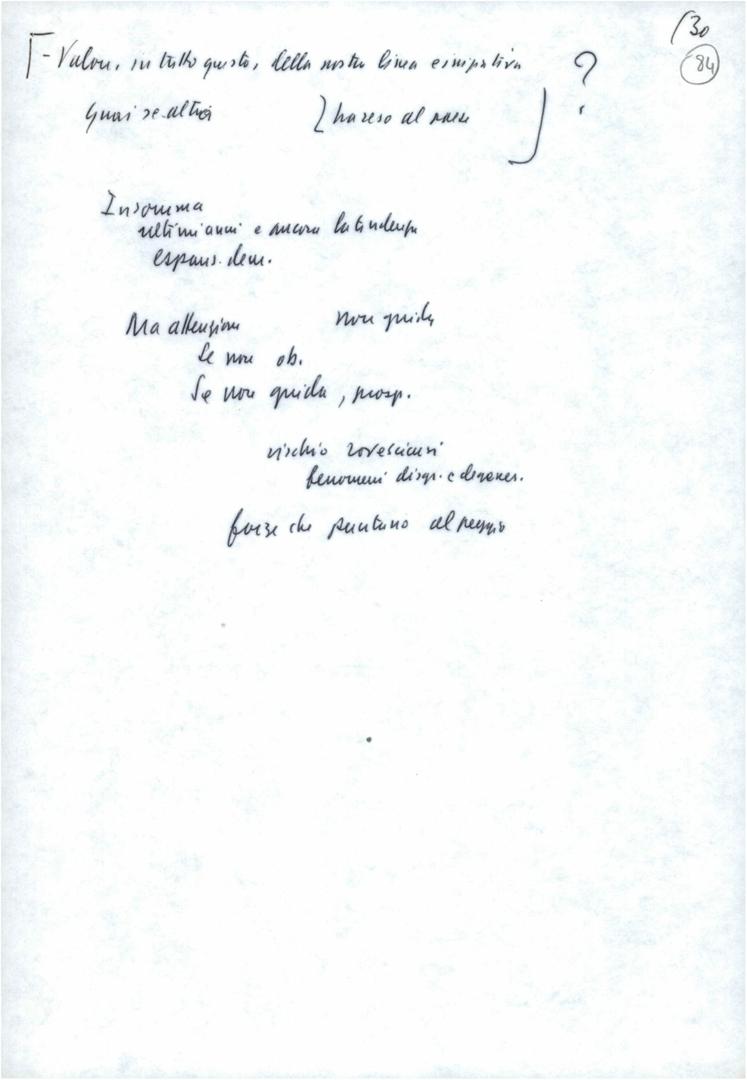 /30
84
- Valore, in tutto questo, della nostra linea e iniziativa ?
Guai se altri ha reso al paese
Insomma
ultimi anni e ancora la tendenza
espans. dem.
Ma attenzione non guida
Se non ob.
Se non guida, prosp.
rischio rovesciarsi
fenomeni disgr. e degener.
forze che puntano al peggio